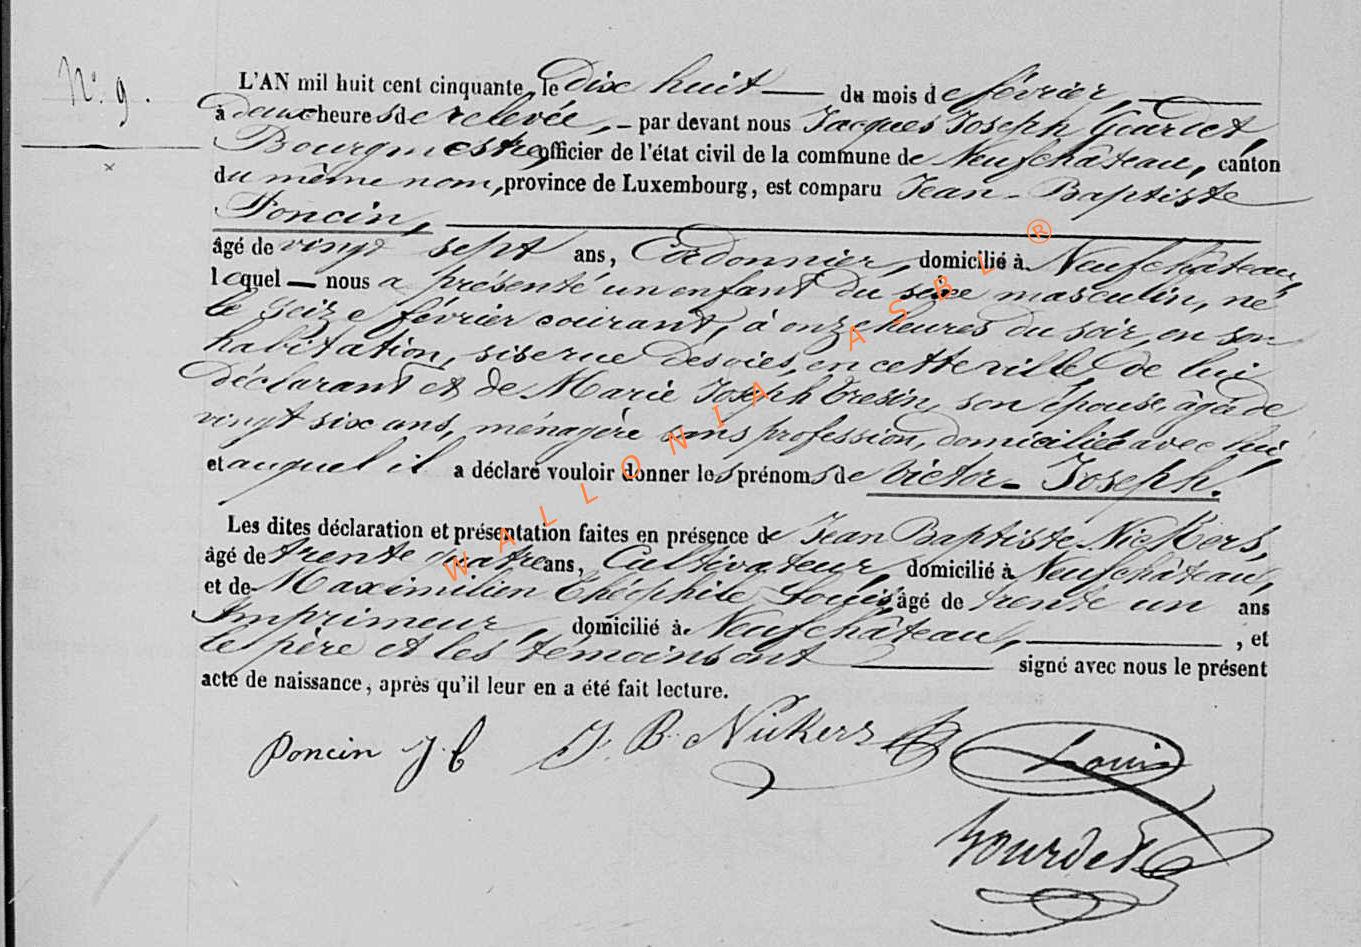 N° 9.
L'AN mil huit cent cinquante, le Dix huit — du mois de février,
à deux heures de relevée, – par devant nous Jacques Joseph Gourdet,
Bourgmestre, officier de l'état civil de la commune de Neufchâteau, canton
du même nom, province de Luxembourg, est comparu Jean-Baptiste
Poncin,
âgé de vingt sept ans, Cordonnier, domicilié à Neufchâteau,
lequel — nous a présenté un enfant du sexe masculin, né
le seize février courant, à onze heures du soir, en son
habitation, sise rue des oies, en cette ville de lui
déclarant et de Marie Joseph Tresin, son épouse, âgée de
vingt six ans, ménagère sans profession, domiciliée avec lui
et auquel il a déclaré vouloir donner les prénoms de Victor-Joseph.
Les dites déclaration et présentation faites en présence de Jean Baptiste Nickers,
âgé de trente quatre ans, Cultivateur, domicilié à Neufchâteau,
et de Maximilien Théophile Louis, âgé de trente un ans
Imprimeur domicilié à Neufchâteau, — , et
le père et les témoins ont — signé avec nous le présent
acte de naissance, après qu'il leur en a été fait lecture.
Poncin J. B J. B. Nickers Louis
Gourdet
WALLONIA ASBL ®